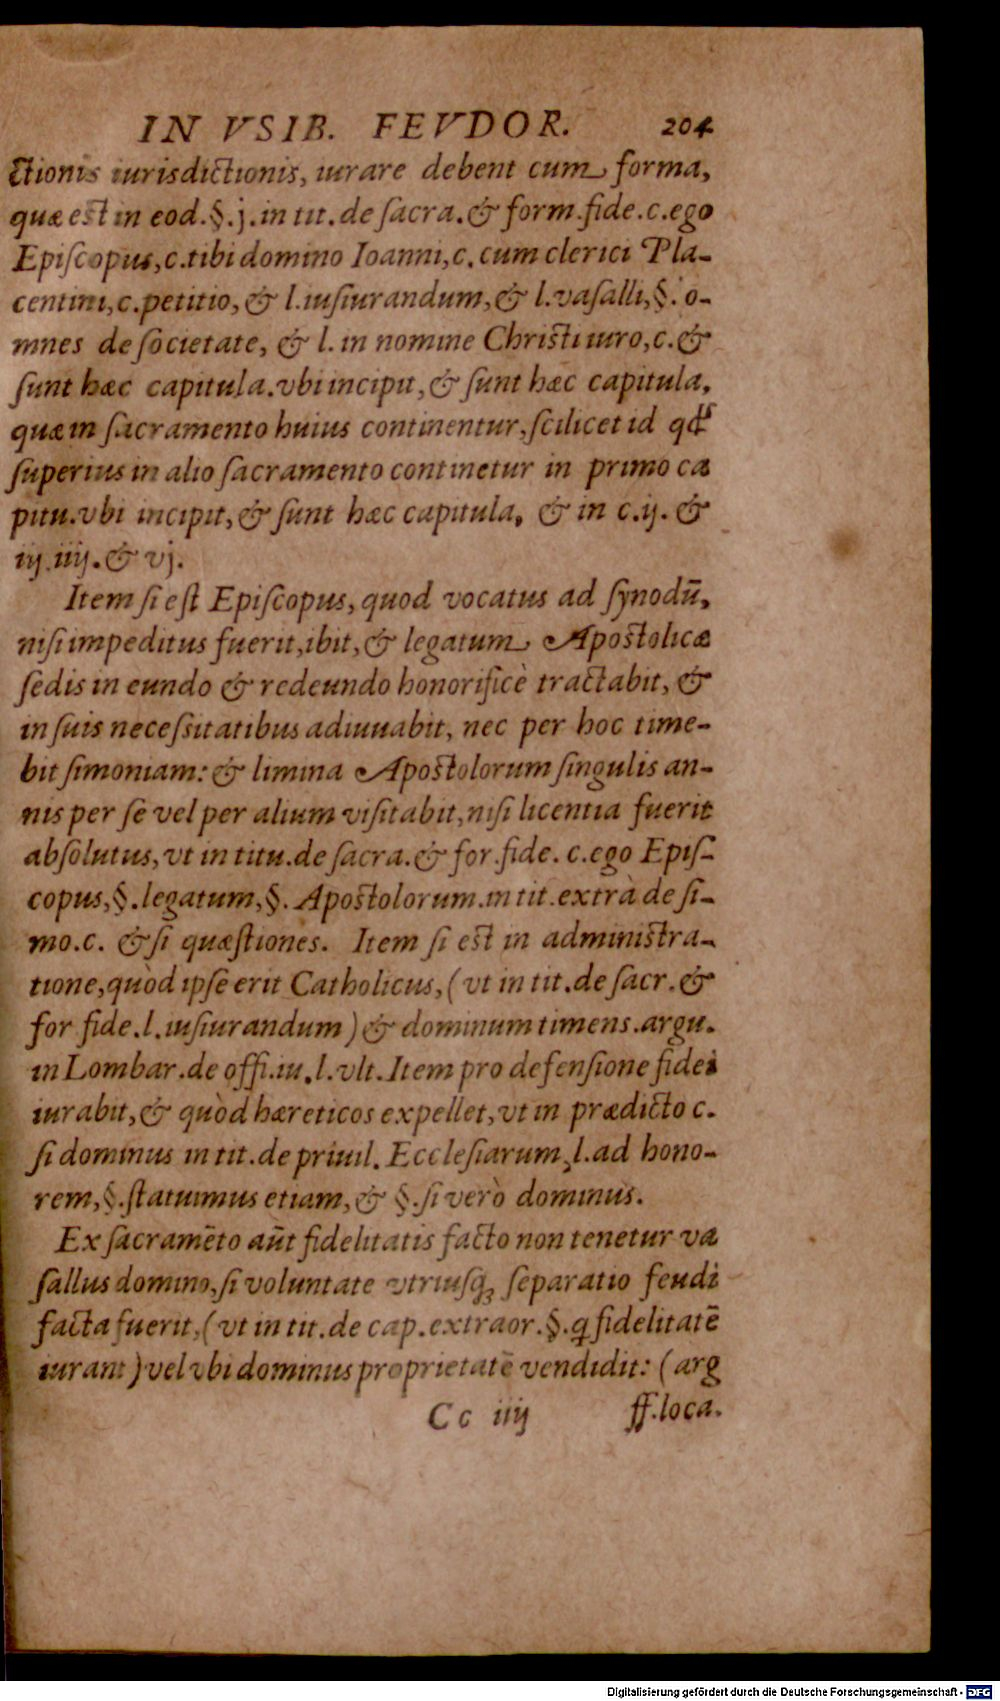 IN VSIB. FEVDOR. 204
ctionis iurisdictionis, iurare debent cum forma,
quæ est in eod.§.j.in tit.de ſacra.& form.fide.c.ego
Epiſcopus,c.tibi domino Ioanni,c.cum clerici Pla-
centini,c.petitio,& l.iuſiurandum,& l.vaſalli,§.o-
mnes de ſocietate, & l. in nomine Christi iuro,c.&
ſunt hæc capitula.vbi incipit,& ſunt hæc capitula,
quæ in ſacramento huius continentur,ſcilicet id qđ
ſuperius in alio ſacramento continetur in primo ca
pitu.vbi incipit,& ſunt hæc capitula, & in c.ij. &
iij.iiij.& vj.
Item ſi eſt Epiſcopus, quod vocatus ad ſynodū,
niſi impeditus fuerit,ibit,& legatum Apostolicæ
ſedis in eundo & redeundo honorificè tractabit, &
in ſuis neceſsitatibus adiuuabit, nec per hoc time-
bit ſimoniam:& limina Apostolorum ſingulis an-
nis per ſe vel per alium viſitabit,niſi licentia fuerit
abſolutus,vt in titu.de ſacra.& for.fide. c.ego Epiſ-
copus,§.legatum,§. Apostolorum.in tit.extrà de ſi-
mo.c. & ſi quæſtiones. Item ſi est in administra-
tione,quòd ipſe erit Catholicus,(vt in tit.de ſacr.&
for fide.l.iuſiurandum)& dominum timens.argu.
in Lombar.de offi.iu.l.vlt.Item pro defenſione fidei
iurabit,& quòd hæreticos expellet,vt in prædicto c.
ſi dominus in tit.de priuil.Eccleſiarum,l.ad hono-
rem,§.ſtatuimus etiam,& §.ſi verò dominus.
Ex ſacramēto aūt fidelitatis facto non tenetur va
ſallus domino,ſi voluntate vtriuſq; ſeparatio feudi
facta fuerit,(vt in tit.de cap.extraor.§.q fidelitatē
iurant)vel vbi dominus proprietatē vendidit: (arg
Cc iiij ff.loca.
Digitalisierung gefördert durch die Deutsche Forschungsgemeinschaft - DFG